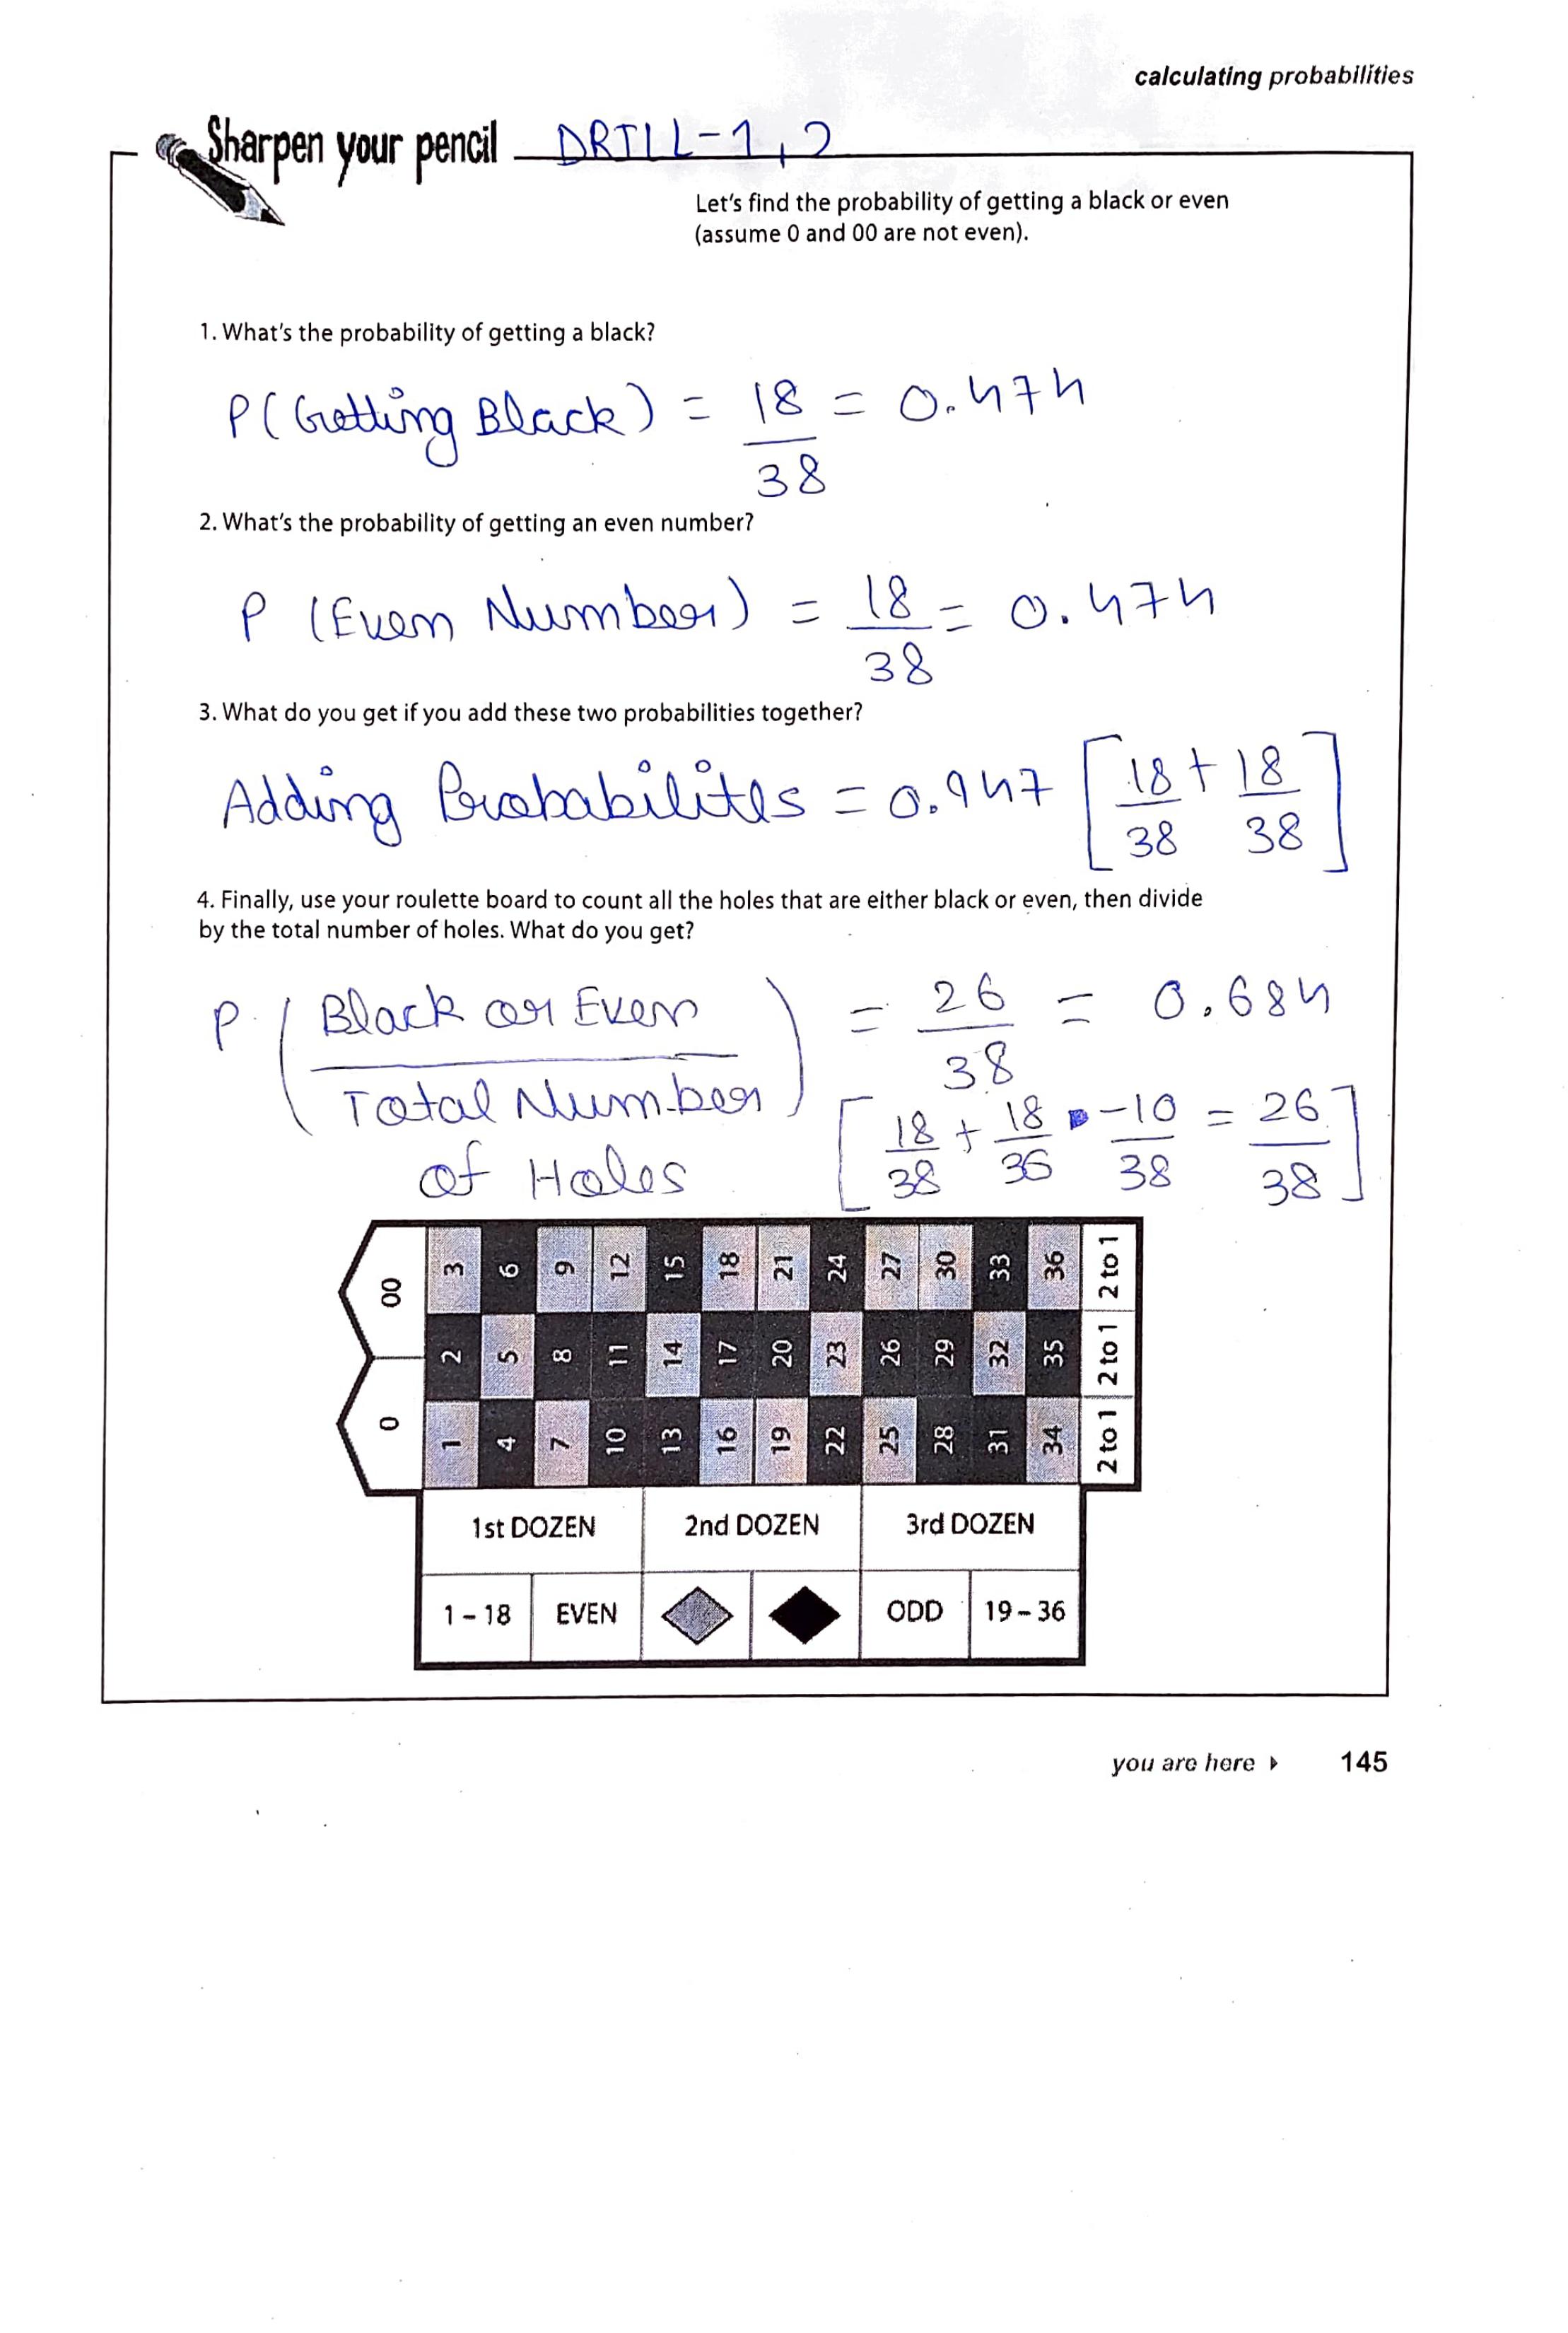 calculating probabilities
Sharpen your pencil DRILL-1,2
Let's find the probability of getting a black or even
(assume 0 and 00 are not even).
1. What's the probability of getting a black?
P(Getting Black) = 18/38 = 0.474
2. What's the probability of getting an even number?
P (Even Number) = 18/38 = 0.474
3. What do you get if you add these two probabilities together?
Adding Probabilites = 0.947 [18/38 + 18/38]
4. Finally, use your roulette board to count all the holes that are either black or even, then divide
by the total number of holes. What do you get?
P (Black or Even / Total Number of Holes) = 26/38 = 0.684
[18/38 + 18/36 -10/38 = 26/38]
00 3 6 9 12 15 18 21 24 27 30 33 36 2 to 1
2 5 8 11 14 17 20 23 26 29 32 35 2 to 1
0 1 4 7 10 13 16 19 22 25 28 31 34 2 to 1
1st DOZEN 2nd DOZEN 3rd DOZEN
1 – 18 EVEN ODD 19 – 36
you are here 145